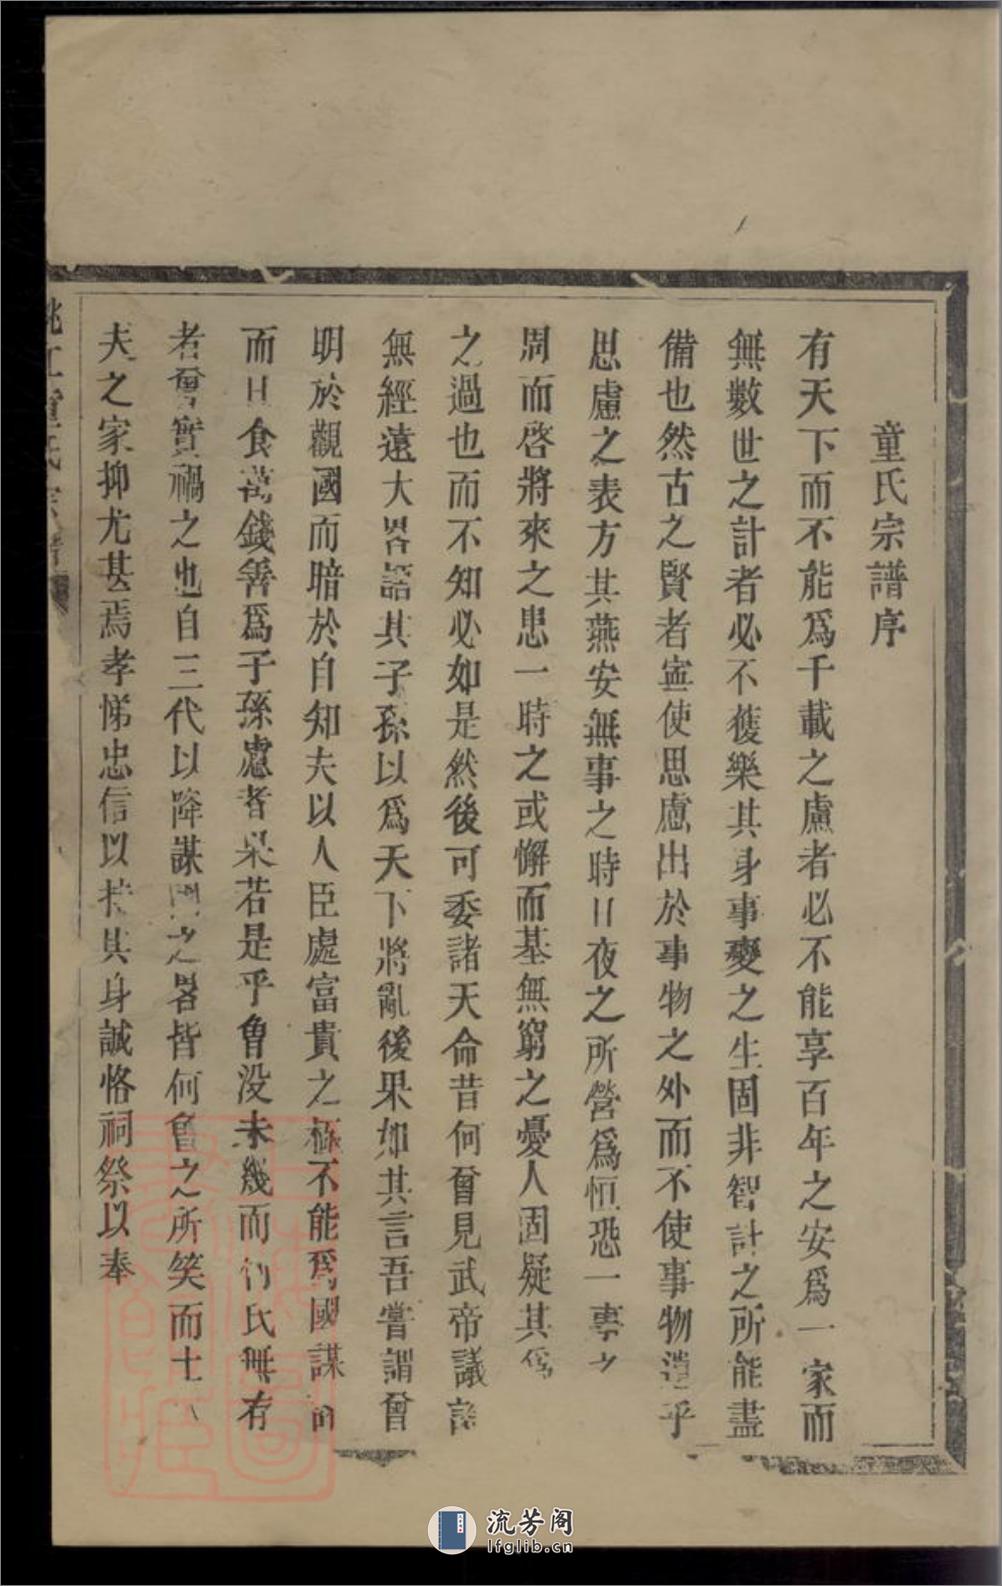 童氏宗譜序
有天下而不能爲千載之慮者必不能享百年之安爲一家而
無數世之計者必不獲樂其身事變之生固非智計之所能盡
備也然古之賢者寧使思慮出於事物之外而不使事物遺乎
思慮之表方其燕安無事之時日夜之所營爲恒恐一事之
周而啓將來之患一時之或懈而基無窮之憂人固疑其爲
之過也而不知必如是然後可委諸天命昔何曾見武帝議論
無經遠大畧語其子孫以爲天下將亂後果如其言吾嘗謂曾
明於觀國而暗於自知夫以人臣處富貴之極不能爲國謀
而日食萬錢善爲子孫慮者果若是乎曾没未幾而何氏無有
者曾實禍之也自三代以降謀國之畧皆何曾之所笑而士
夫之家抑尤甚焉孝悌忠信以持其身誠恪祠祭以奉
姚江童氏宗譜
流芳阁
lfglib.cn